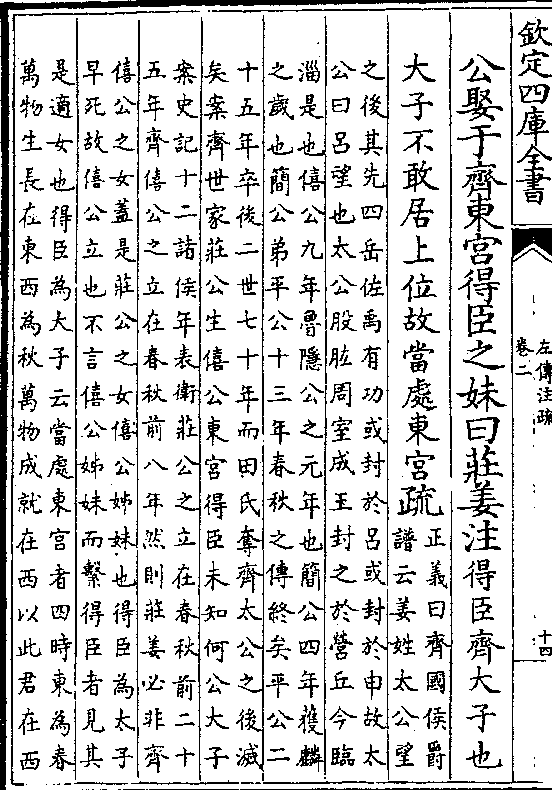 欽定四庫全書
左傳注疏
卷二
十四
公娶于齊東宮得臣之妹曰莊姜注得臣齊大子也
大子不敢居上位故當處東宮疏
正義曰齊國侯爵
譜云姜姓太公望
之後其先四岳佐禹有功或封於呂或封於申故太
公曰呂望也太公股肱周室成王封之於營丘今臨
淄是也僖公九年魯隱公之元年也簡公四年獲麟
之歲也簡公弟平公十三年春秋之傳終矣平公二
十五年卒後二世七十年而田氏奪齊太公之後滅
矣案齊世家莊公生僖公東宮得臣未知何公大子
案史記十二諸侯年表衛莊公之立在春秋前二十
五年齊僖公之立在春秋前八年然則莊姜必非齊
僖公之女蓋是莊公之女僖公姊妹也得臣為太子
早死故僖公立也不言僖公姊妹而繫得臣者見其
是適女也得臣為大子云當處東宮者四時東為春
萬物生長在東西為秋萬物成就在西以此君在西